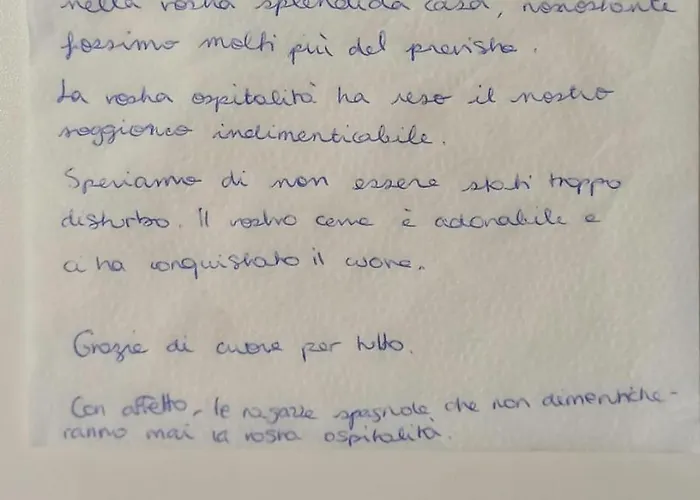 nella vostra splendida casa, nonostante
fossimo molti più del previsto.
La vostra ospitalità ha reso il nostro
soggiorno indimenticabile.
Speriamo di non essere stati troppo
disturbo. Il vostro cane è adorabile e
ci ha conquistato il cuore.
Grazie di cuore per tutto.
Con affetto, le ragazze spagnole che non dimentiche-
ranno mai la vostra ospitalità.